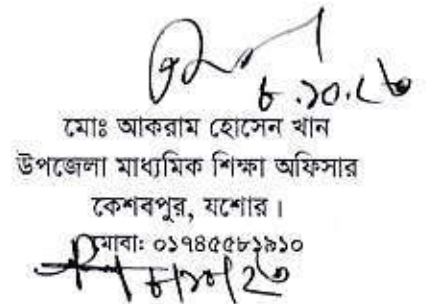 ৮.১০.২৩
মোঃ আকরাম হোসেন খান
উপজেলা মাধ্যমিক শিক্ষা অফিসার
কেশবপুর, যশোর।
মোবা: ০১৭৪৫৫৮১৯১০
৮/১০/২৩